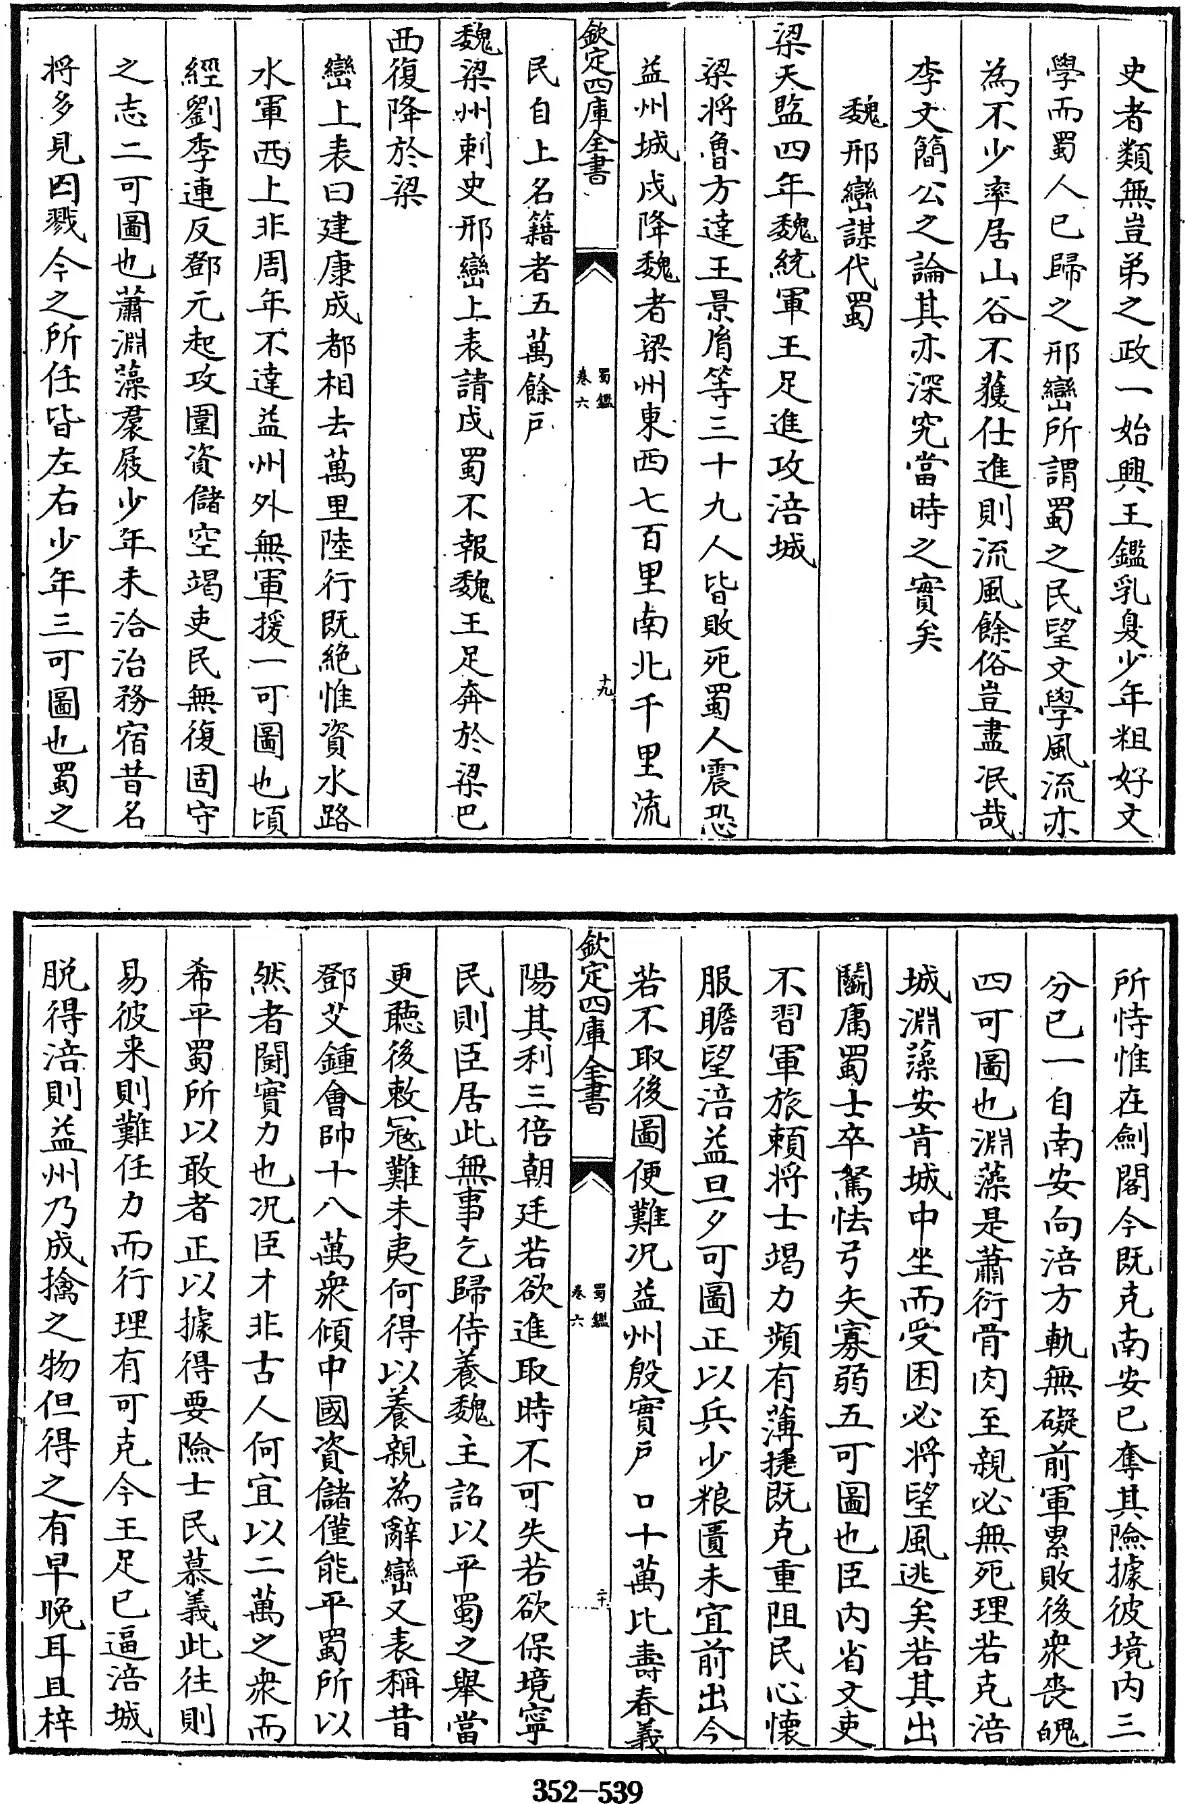 史者類無豈弟之政一始興王鑑乳臭少年粗好文
學而蜀人已歸之邢巒所謂蜀之民望文學風流亦
為不少率居山谷不獲仕進則流風餘俗豈盡泯哉
李文簡公之論其亦深究當時之實矣
魏邢巒謀代蜀
梁天監四年魏統軍王足進攻涪城
梁將魯方達王景胤等三十九人皆敗死蜀人震恐
益州城戍降魏者梁州東西七百里南北千里流
欽定四庫全書
蜀鑑
卷六
十九
民自上名籍者五萬餘戶
魏梁州刺史邢巒上表請戍蜀不報魏王足奔於梁巴
西復降於梁
巒上表曰建康成都相去萬里陸行既絶惟資水路
水軍西上非周年不達益州外無軍援一可圖也頃
經劉季連反鄧元起攻圍資儲空竭吏民無復固守
之志二可圖也蕭淵藻裠屐少年未洽治務宿昔名
將多見囚戮今之所任皆左右少年三可圖也蜀之
所恃惟在劍閣今既克南安已奪其險據彼境内三
分已一自南安向涪方軌無礙前軍累敗後衆喪魄
四可圖也淵藻是蕭衍骨肉至親必無死理若克涪
城淵藻安肯城中坐而受困必將望風逃矣若其出
鬭庸蜀士卒駑怯弓矢寡弱五可圖也臣内省文吏
不習軍旅賴將士竭力頻有薄捷既克重阻民心懷
服瞻望涪益旦夕可圖正以兵少粮匱未宜前出今
若不取後圖便難况益州殷實戶口十萬比壽春義
欽定四庫全書
蜀鑑
卷六
二十
陽其利三倍朝廷若欲進取時不可失若欲保境寧
民則臣居此無事乞歸侍養魏主詔以平蜀之舉當
更聽後敕寇難未夷何得以養親為辭巒又表稱昔
鄧艾鍾會帥十八萬衆傾中國資儲僅能平蜀所以
然者鬭實力也况臣才非古人何宜以二萬之衆而
希平蜀所以敢者正以據得要險士民慕義此往則
易彼来則難任力而行理有可克今王足已逼涪城
脱得涪則益州乃成擒之物但得之有早晚耳且梓
352-539